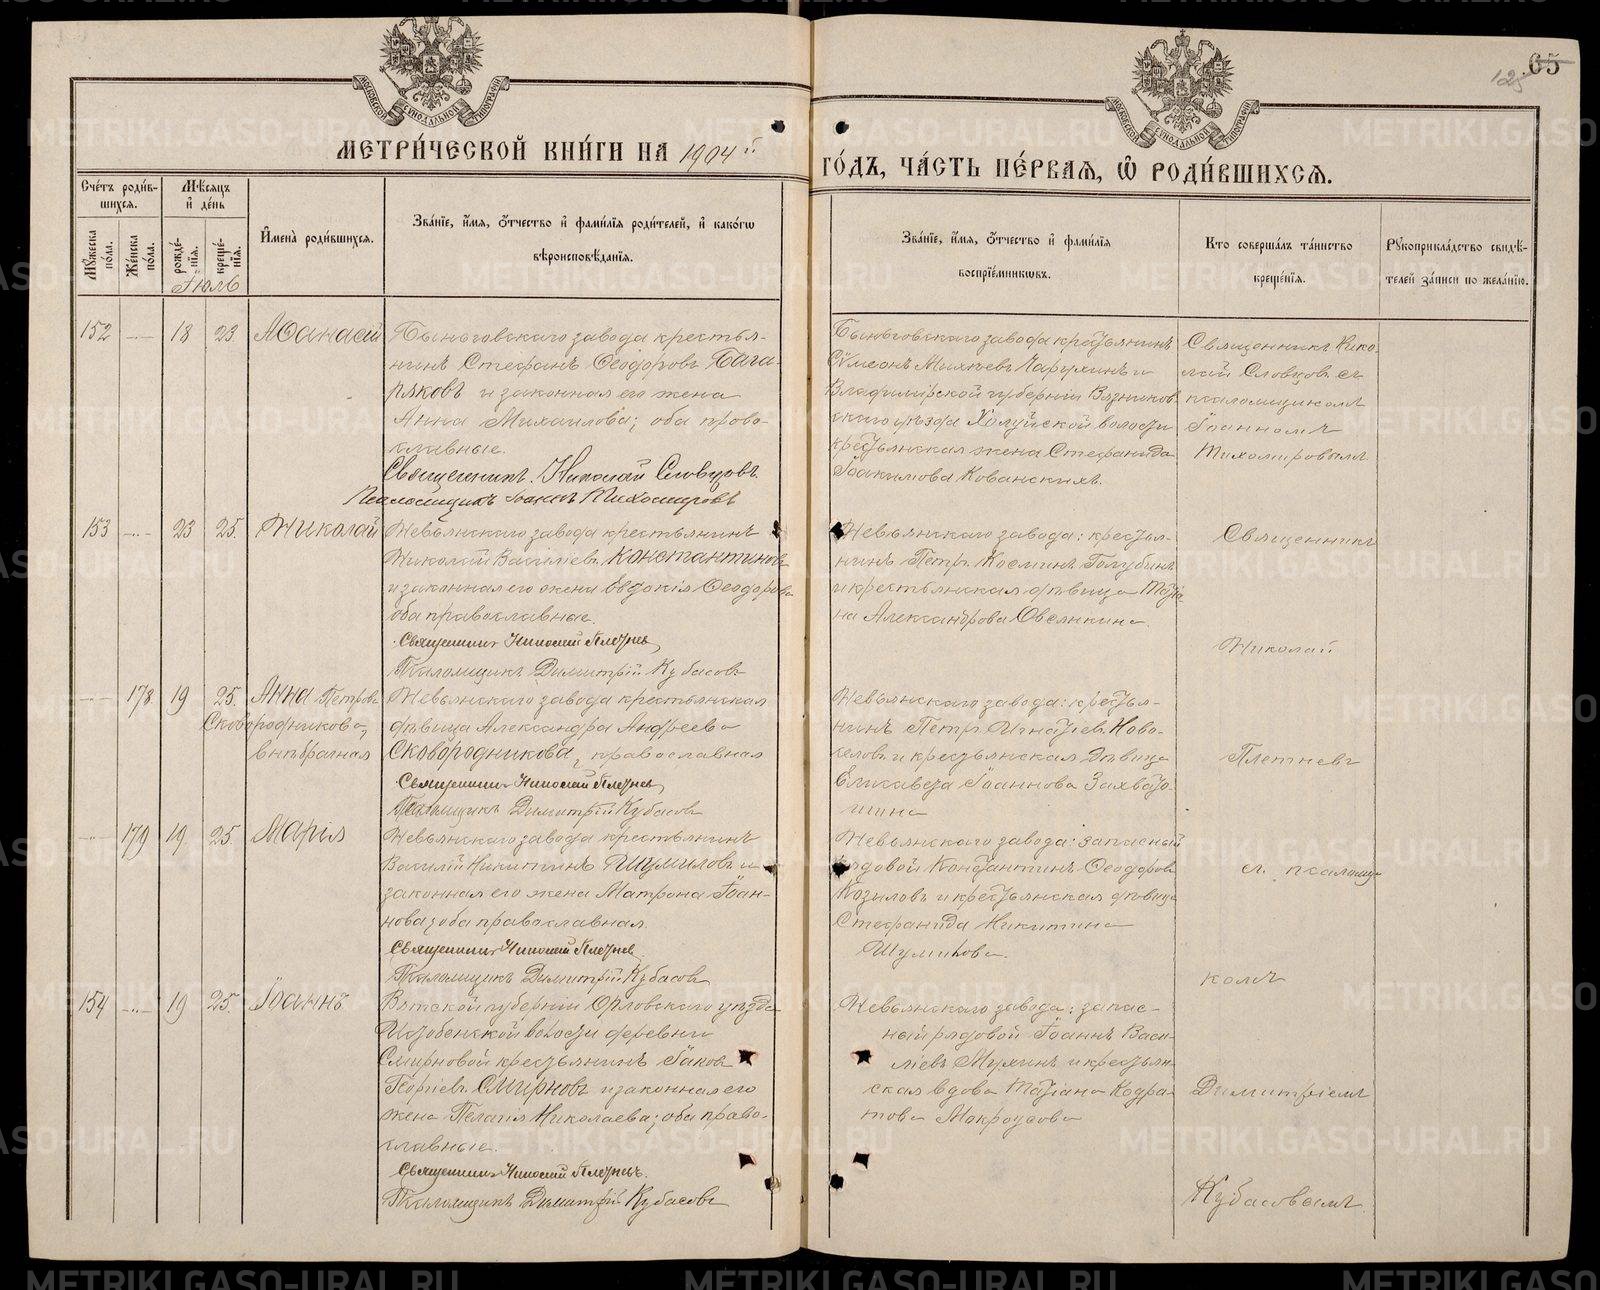 65
125
МОСКОВСКОЙ СѴНОДАЛЬНОЙ ТИПОГРАФІИ
МОСКОВСКОЙ СѴНОДАЛЬНОЙ ТИПОГРАФІИ
МЕТРИ́ЧЕСКОЙ КНИ́ГИ НА 1904й
ГО́ДЪ, ЧА́СТЬ ПЕ́РВАѦ, Ѡ҆ РОДИ́ВШИХСѦ.
Сче́тъ роди́в-
шихсѧ.
Мѣ́сѧцъ
и҆ де́нь
Мꙋ́жеска
по́ла.
Же́нска
по́ла.
рожде́-
нїѧ.
креще́-
нїѧ.
И҆мена̀ роди́вшихсѧ.
Зва́нїе, и҆́мѧ, ѻ҆́тчество и҆ фами́лїѧ роди́телей, и҆ како́гѡ
вѣроисповѣ́данїѧ.
Зва́нїе, и҆́мѧ, ѻ҆́тчество и҆ фами́лїѧ
воспрїе́мникѡвъ.
Кто̀ соверша́лъ та́инство
креще́нїѧ.
Рꙋкоприкла́дство свидѣ́-
телей за́писи по жела́нїю.
Іюль
152 — 18 23. Аѳанасій
Быньговскаго завода крестья-
нинъ Стефанъ Ѳеодоровъ Бага-
ряковъ и законная его жена
Анна Михаилова; оба право-
славные.
Священникъ Николай Словцовъ.
Псаломщикъ Іоаннъ Тихомировъ
Быньговскаго завода крестьянинъ
Сѵмеонъ Михѣевъ Ларухинъ и
Владимірской губерніи Вязников-
скаго уѣзда Холуйской волости
крестьянская жена Стефанида
Іоакимова Кованскихъ.
Священникъ Нико-
лай Словцовъ съ
псаломщикомъ
Іоанномъ
Тихомировымъ
153 — 23 25. Николай
Невьянскаго завода крестьянинъ
Николай Василіевъ Константиновъ
и законная его жена Евдокія Ѳеодорова
оба православные.
Священникъ Николай Плетневъ
Псаломщикъ Димитрій Кубасовъ
Невьянскаго завода: крестья-
нинъ Петръ Косминъ Голубинъ
и крестьянская дѣвица Татiа-
на Александрова Овсянкина.
Священникъ
Николай
— 178 19 25. Анна Петрова
Сковородникова,
внѣбрачная
Невьянскаго завода крестьянская
дѣвица Александра Андреева
Сковородникова, православная
Священникъ Николай Плетневъ
Псаломщикъ Димитрій Кубасовъ
Невьянскаго завода: крестья-
нинъ Петръ Игнатіевъ Ново-
селовъ и крестьянская дѣвица
Елисавета Іоаннова Захвато-
шина
Плетневъ
— 179 19 25. Марія
Невьянскаго завода крестьянинъ
Василій Никитинъ Шумиловъ и
законная его жена Матрона Іоан-
нова; оба православная.
Священникъ Николай Плетневъ
Псаломщикъ Димитрій Кубасовъ
Невьянскаго завода: запасный
рядовой Константинъ Ѳеодоровъ
Козиловъ и крестьянская дѣвица
Стефанида Никитина
Шумилова.
съ псаломщи-
комъ
154 — 19 25. Іоаннъ
Вятской губерніи Орловскаго уѣзда
Истобенской волости деревни
Смирновой крестьянинъ Іаковъ
Георгіевъ Смирновъ и законная его
жена Пелагія Николаева; оба право-
славные.
Священникъ Николай Плетневъ.
Псаломщикъ Димитрій Кубасовъ
Невьянскаго завода: запас-
ный рядовой Іоаннъ Васи-
ліевъ Мухинъ и крестьян-
ская вдова Татіана Кодра-
това Мокроусова
Димитріемъ
Кубасовымъ
METRIKI.GASO-URAL.RU